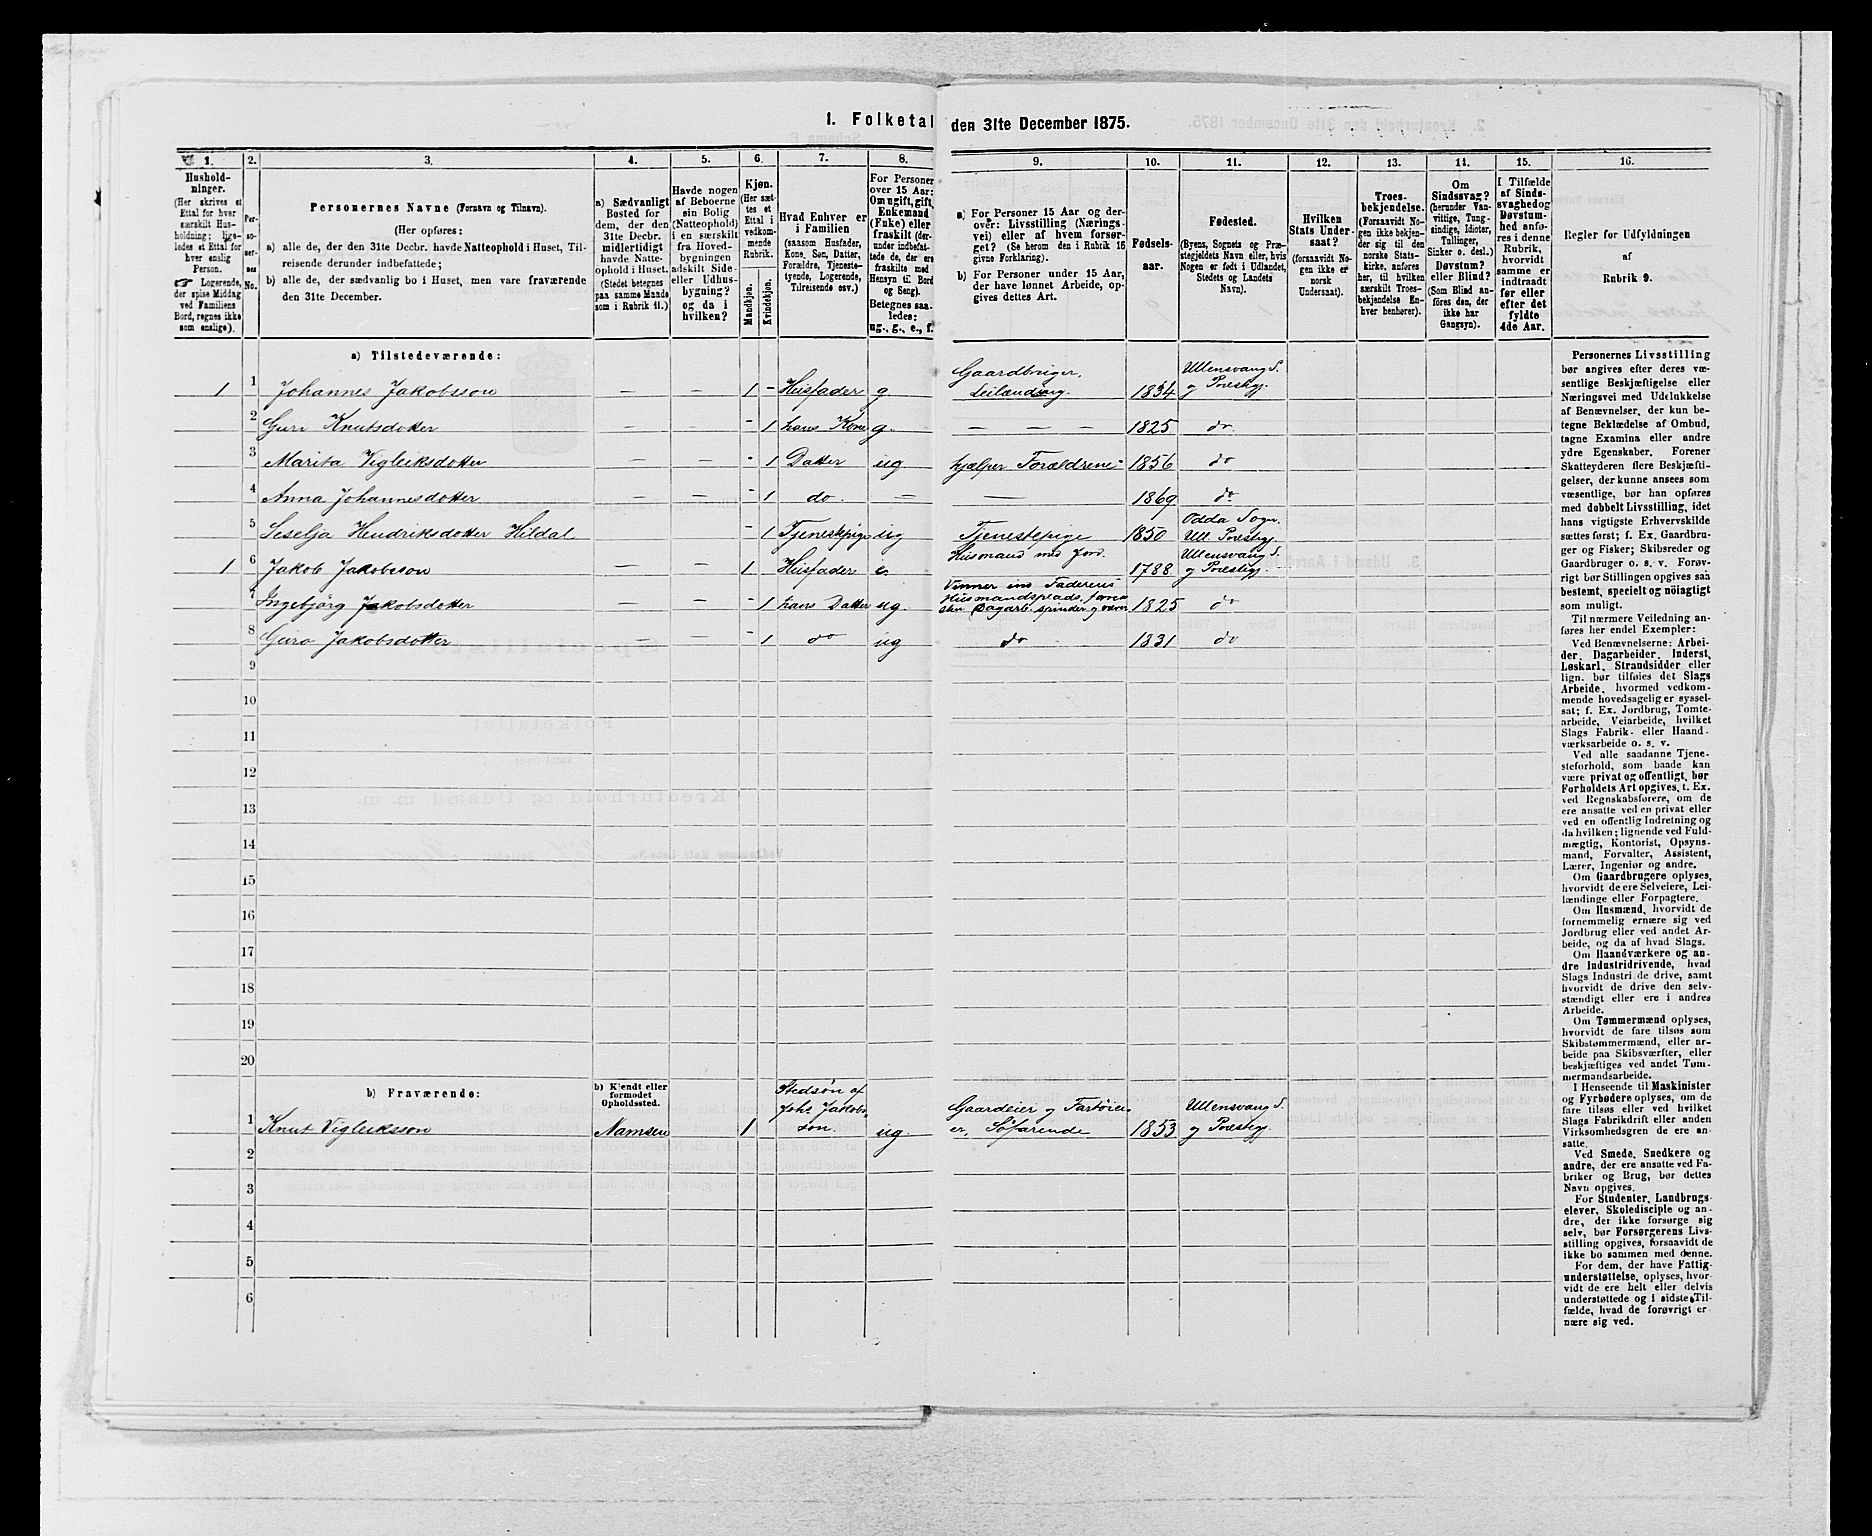 1. Folketal den 31te December 1875.
1. 2. 3. 4. 5. 6. 7. 8. 9. 10. 11. 12. 13. 14. 15. 16.
Hushold-
ninger.
(Her skrives et
Ettal for hver
særskilt Hus-
holdning; lige-
ledes et Ettal for
hver enslig
Person.
☞ Logerende,
der spise Middag
ved Familiens
Bord, regnes ikke
som enslige).
Per-
so-
ner-
nes
No.
Personernes Navne (Fornavn og Tilnavn).
(Her opføres:
a) alle de, der den 31te Decbr. havde Natteophold i Huset, Til-
reisende derunder indbefattede;
b) alle de, der sædvanlig bo i Huset, men vare fraværende
den 31te December.
a) Sædvanligt
Bosted for
dem, der den
31te Decbr.
midlertidigt
havde Natte-
ophold i Huset.
(Stedet betegnes
paa samme Maade
som i Rubrik 11.)
Havde nogen
af Beboerne
sin Bolig
(Natteophold)
i en særskilt
fra Hoved-
bygningen
adskilt Side-
eller Udhus-
bygning?
og da i
hvilken?
Kjøn.
(Her sæt-
tes et
Ettal i
vedkom-
mende
Rubrik.
Mandkjøn.
Kvindekjøn.
Hvad Enhver er
i Familien
(saasom Husfader,
Kone, Søn, Datter,
Forældre, Tjeneste-
tyende, Logerende,
Tilreisende osv.)
For Personer
over 15 Aar:
Om ugift, gift,
Enkemand
(Enke) eller
fraskilt (der-
under indbefat-
tede de, der ere
fraskilte med
Hensyn til Bord
og Seng).
Betegnes saa-
ledes:
ug., g., e., f.
a) For Personer 15 Aar og der-
over: Livsstilling (Nærings-
vei) eller af hvem forsør-
get? (Se herom den i Rubrik 16
givne Forklaring).
b) For Personer under 15 Aar,
der have lønnet Arbeide, op-
gives dettes Art.
Fødsels-
aar.
Fødested.
(Byens, Sognets og Præ-
stegjeldets Navn eller, hvis
Nogen er født i Udlandet,
Stedets og Landets
Navn).
Hvilken
Stats Under-
saat?
(forsaavidt No-
gen ikke er
norsk
Undersaat).
Troes-
bekjendelse.
(Forsaavidt No-
gen ikke bekjen-
der sig til den
norske Stats-
kirke, anføres
her, til hvilken
særskilt Troes-
bekjendelse En-
hver henhører).
Om
Sindssvag?
(herunder Van-
vittige, Tung-
sindige, Idioter,
Tullinger,
Sinker o. desl.)
Døvstum?
eller Blind?
(Som Blind an-
føres den, der
ikke har
Gangsyn).
I Tilfælde
af Sinds-
svaghed og
Døvstum-
hed anfø-
res i denne
Rubrik,
hvorvidt
samme er
indtraadt
før eller
efter det
fyldte
4de Aar.
Regler for Udfyldningen
af
Rubrik 9.
a) Tilstedeværende:
1 1 Johannes Jakobsson — — 1 - Husfader g Gaardbruger, Leilænding. 1834 Ullensvang S. og Præstgj.
2 Guri Knutsdotter — — - 1 hans Kone g. — — 1825 do
3 Marita Vigleiksdotter — — - 1 Datter ug hjælper Forældrene 1856 do
4 Anna Johannesdotter — — - 1 do. — — 1869 do
5 Seselja Hendriksdotter Hildal - 1 Tjenestepige ug Tjenestepige 1850 Odda Sogn. Ull. Præstgj.
1 6 Jakob Jakobsson — — 1 Husfader e. Husmand med Jord. 1788 Ullensvang S. og Præstgj.
7 Ingebjörg Jakobsdotter — — - 1 hans Datter ug. Faderens Husmandsplads, spinder og væver 1825 do
8 Guro Jakobsdotter — — - 1 do ug do 1831 do
9
10
11
12
13
14
15
16
17
18
19
20
b) Fraværende:
b) Kjendt eller
formodet
Opholdssted.
1 Knut Vigleiksson Namsen 1 Stedsøn af Johs Jakobs- son. ug. Gaardeier og Fartøiei- er, Söfarende 1853 Ullensvang S. og Præstgj.
2
3
4
5
6
Personernes Livsstilling
bør angives efter deres væ-
sentlige Beskjæftigelse eller
Næringsvei med Udelukkelse
af Benævnelser, der kun be-
tegne Beklædelse af Ombud,
tagne Examina eller andre
ydre Egenskaber. Forener
Skatteyderen flere Beskjæfti-
gelser, der kunne ansees som
væsentlige, bør han opføres
med dobbelt Livsstilling, idet
hans vigtigste Erhvervskilde
sættes først; f. Ex. Gaardbru-
ger og Fisker; Skibsreder og
Gaardbruger o. s. v. Forøv-
rigt bør Stillingen opgives saa
bestemt, specielt og nøiagtigt
som muligt.
Til nærmere Veiledning an-
føres her endel Exempler:
Ved Benævnelserne: Arbei-
der, Dagarbeider, Inderst,
Løskarl, Strandsidder eller
lign. bør tilføies det Slags
Arbeide, hvormed vedkom-
mende hovedsagelig er syssel-
sat; f. Ex. Jordbrug, Tomte-
arbeide, Veiarbeide, hvilket
Slags Fabrik- eller Haand-
værksarbeide o. s. v.
Ved alle saadanne Tjene-
steforhold, som baade kan
være privat og offentligt, bør
Forholdets Art opgives, t. Ex.
ved Regnskabsførere, om de
ere ansatte ved en privat eller
ved en offentlig Indretning og
da hvilken; lignende ved Fuld-
mægtig, Kontorist, Opsyns-
mand, Forvalter, Assistent,
Lærer, Ingeniør og andre.
Om Gaardbrugere oplyses,
hvorvidt de ere Selveiere, Lei-
lændinge eller Forpagtere.
Om Husmænd, hvorvidt de
fornemmelig ernære sig ved
Jordbrug eller ved andet Ar-
beide, og da af hvad Slags.
Om Haandværkere og an-
dre Industridrivende, hvad
Slags Industri de drive, samt
hvorvidt de drive den selv-
stændigt eller ere i andres
Arbeide.
Om Tømmermænd oplyses,
hvorvidt de fare tilsøs som
Skibstømmermænd, eller ar-
beide paa Skibsværfter, eller
beskjæftiges ved andet Tøm-
mermandsarbeide.
I Henseende til Maskinister
og Fyrbødere oplyses, om de
fare tilsøs eller ved hvilket
Slags Fabrikdrift eller anden
Virksomhedsgren de ere an-
satte.
Ved Smede, Snedkere og
andre, der ere ansatte ved Fa-
briker og Brug, bør dettes
Navn opgives.
For Studenter, Landbrugs-
elever, Skoledisciple og an-
dre, der ikke forsørge sig
selv, bør Forsørgerens Livs-
stilling opgives, forsaavidt de
ikke bo sammen med denne.
For dem, der have Fattig-
understøttelse, oplyses, hvor-
vidt de ere helt eller delvis
understøttede og i sidste Til-
fælde, hvad de forøvrigt er-
nære sig ved.